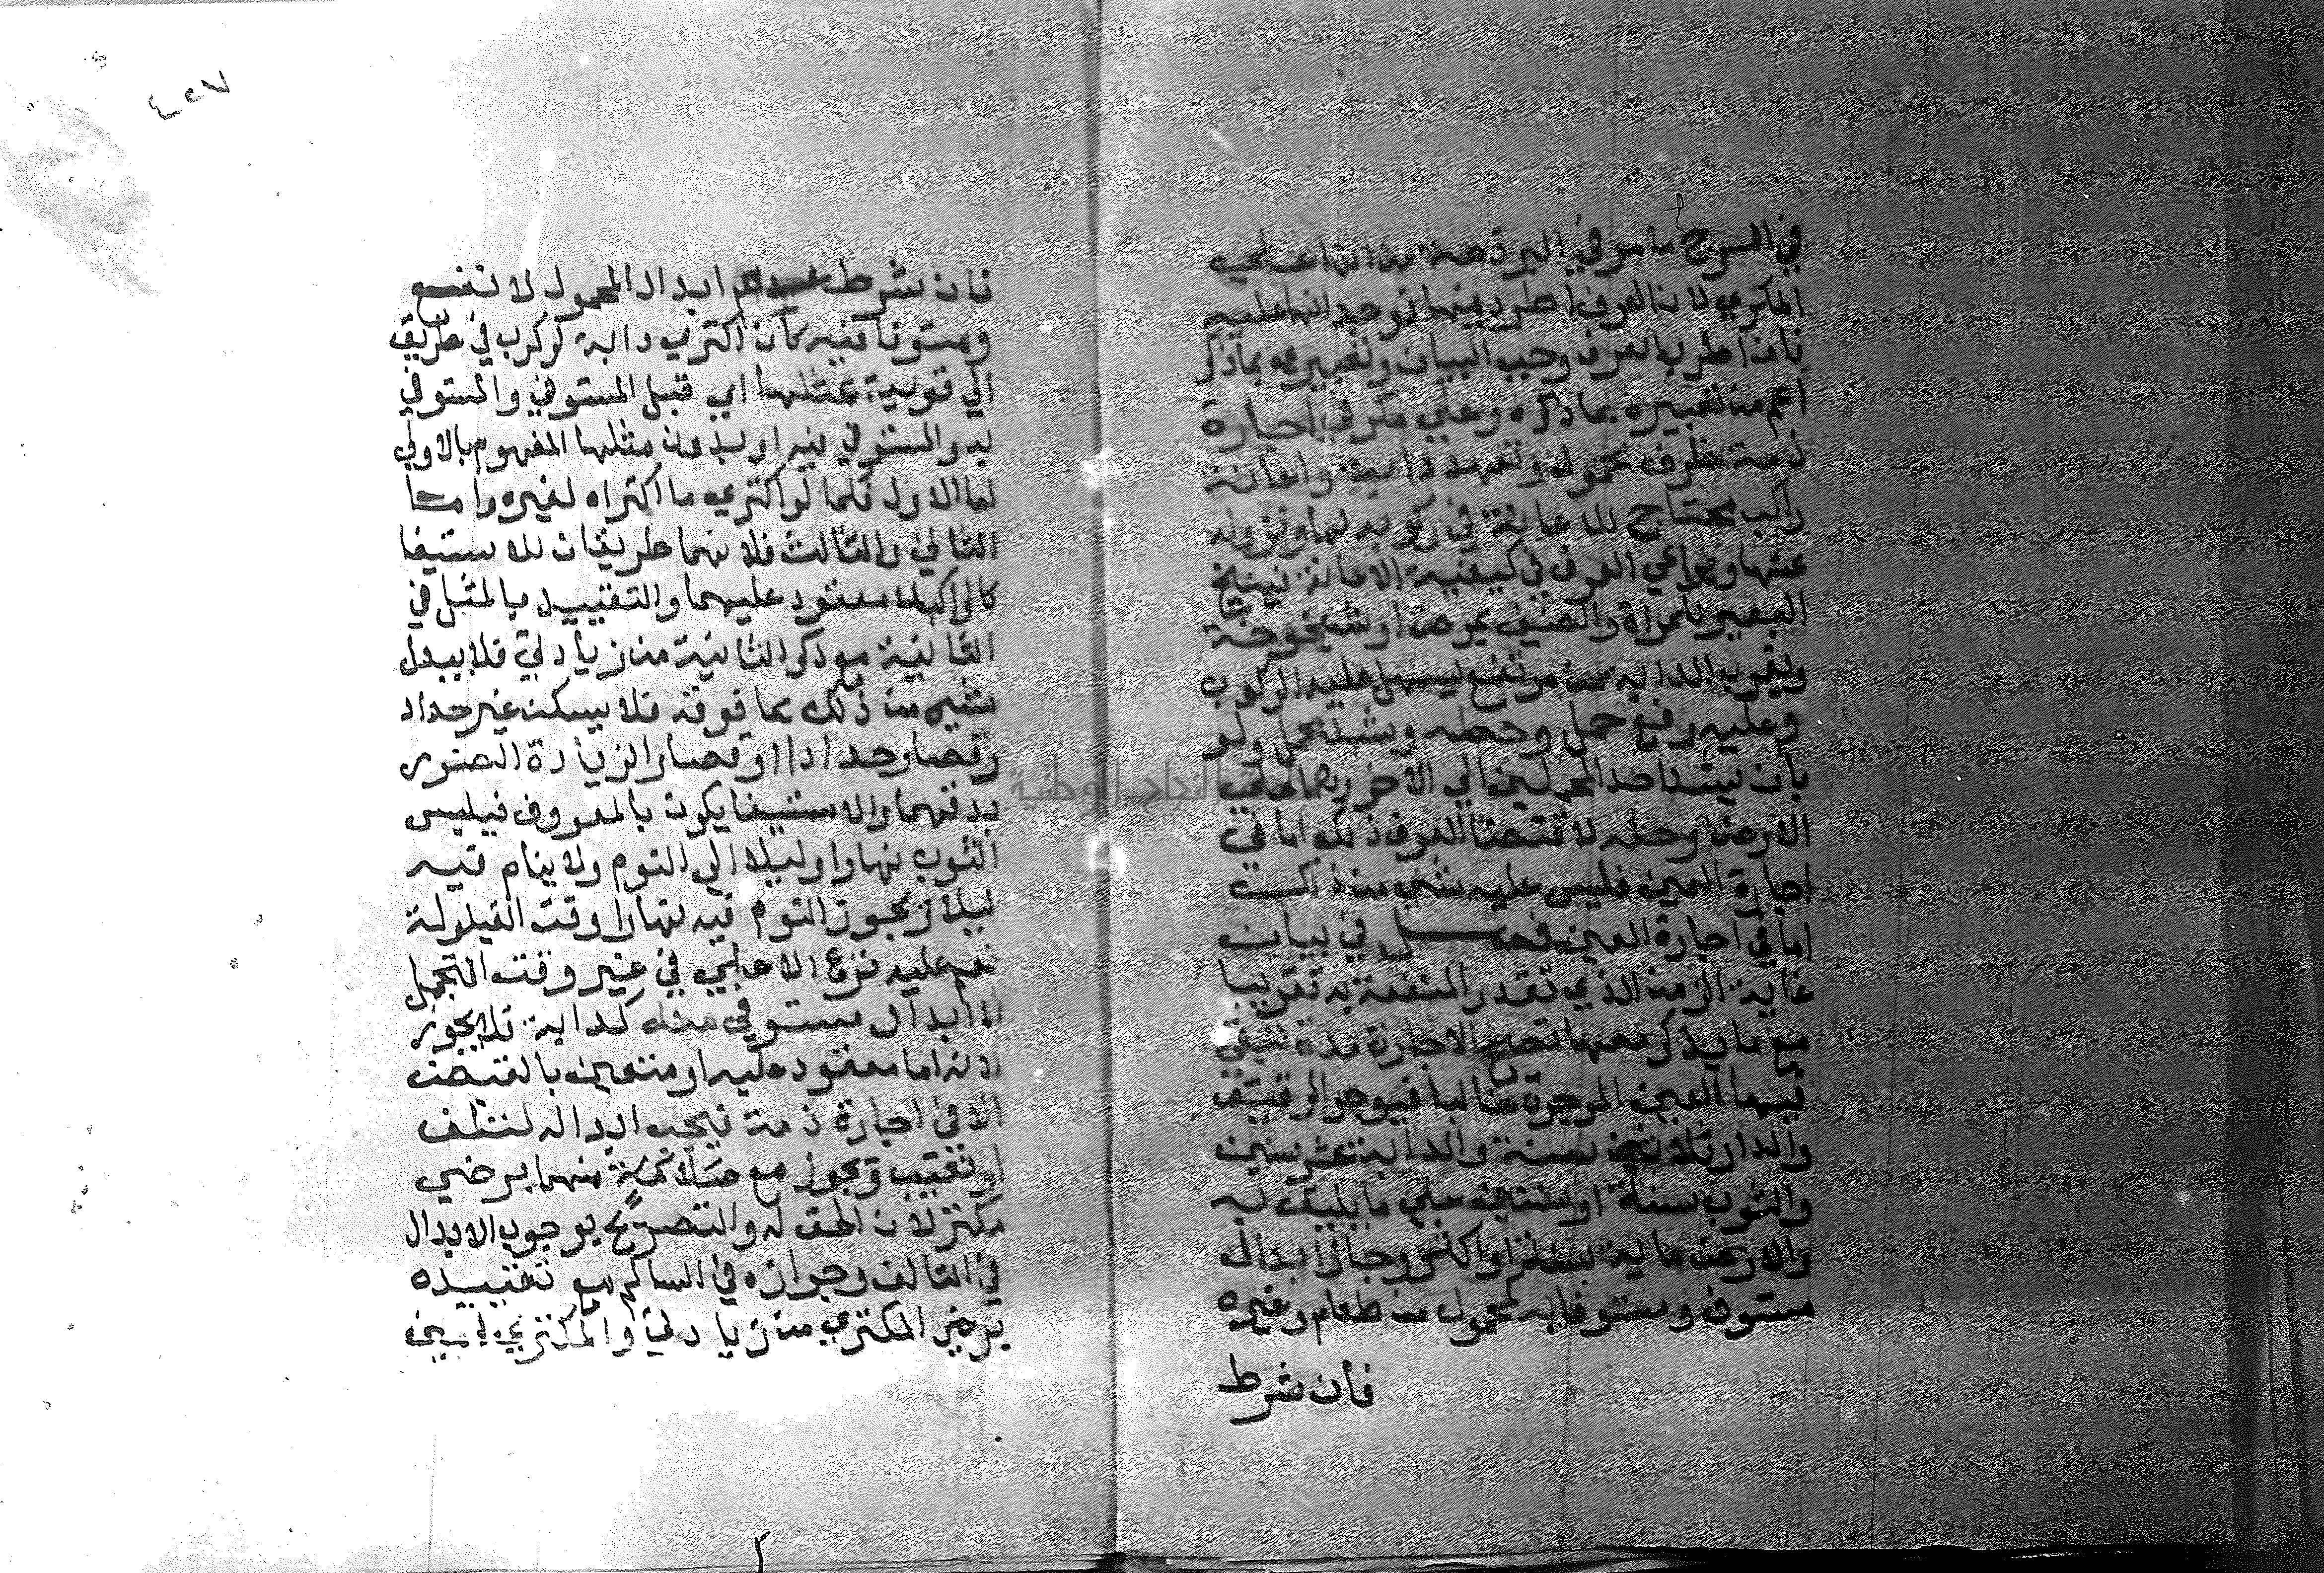 في السرج ما مر في البرذعة من انها علي
المكتري لان العرف اطرد بينها توجد انها عليه
فان اضطرب العرف وجب البيان وتعبيري بما ذكر
اعم من تعبيره بما ذكره وعلي مكر في اجارة
ذمة ظرف محمول وتعهد دابة واعانة
راكب محتاج للاعانة في ركوبه لها ونزوله
عنها ويراعي العرف في كيفية الاعانة فينيخ
البعير للمراة والضعيف بمرض او شيخوخة
ويقرب الدابة من مرتفع ليسهل عليه الركوب
وعليه رفع حمل وحطه وشد محمل ولو
بان يشد احد المحملين الي الاخر وهما علي
الارض وحله لاقتضا العرف ذلك اما في
اجارة العين فليس عليه شي من ذلك
اما في اجارة العين فصل في بيان
غاية الزمن الذي تقدر المنفعة به تقريبا
مع ما يذكر معها تصح الاجارة مدة تبقي
فيها العين الموجرة غالبا فيوجر الرقيق
والدار ثلاثين سنة والدابة عشر سنين
والثوب سنة او سنتين علي ما يليق به
والارض ماية سنة او اكثر وجاز ابدال
مستوف ومستوفا به كمحمول من طعام وغيره
فان شرط
٤٢٧
فان شرط عدم ابدال المحمول لا تفع
ومستوفا فيه كان اكتري دابة لركوب في طريق
الي قرية بمثلها اي قبل المستوفي والمستوفي
به والمستوفي فيه او بدون مثلها المفهوم بالاولي
اما الاول فكما لو اكتري ما اكتراه لغيره واما
الثاني والثالث فلانهما طريقان للاستيفا
كالراكب لا معقود عليهما والتقييد بالمثل في
الثانية مع ذكر الثانية من زيادتي فلا يبدل
بشي من ذلك بما فوقه فلا يسكن غير حداد
وقصار حدادا او قصارا لزيادة الضرر
بدقهما والاستيفا يكون بالمعروف فيلبس
الثوب نهارا وليلا الي النوم ولا ينام فيه
ليلا ويجوز النوم فيه نهارا وقت القيلولة
نعم عليه نزع الاعلي في غير وقت التجمل
لا ابدال مستوفي منه كدابة فلا يجوز
لانه اما معقود عليه او متعين بالقبض
الا في اجارة ذمة فيجب ابداله لتلف
او تعيب ويجوز مع سلامة منهما برضي
مكتر لان الحق له والتصريح بوجوب الابدال
في التالف وجوازه في السالم مع تقييده
برضي المكتري من زيادتي والمكتري امين